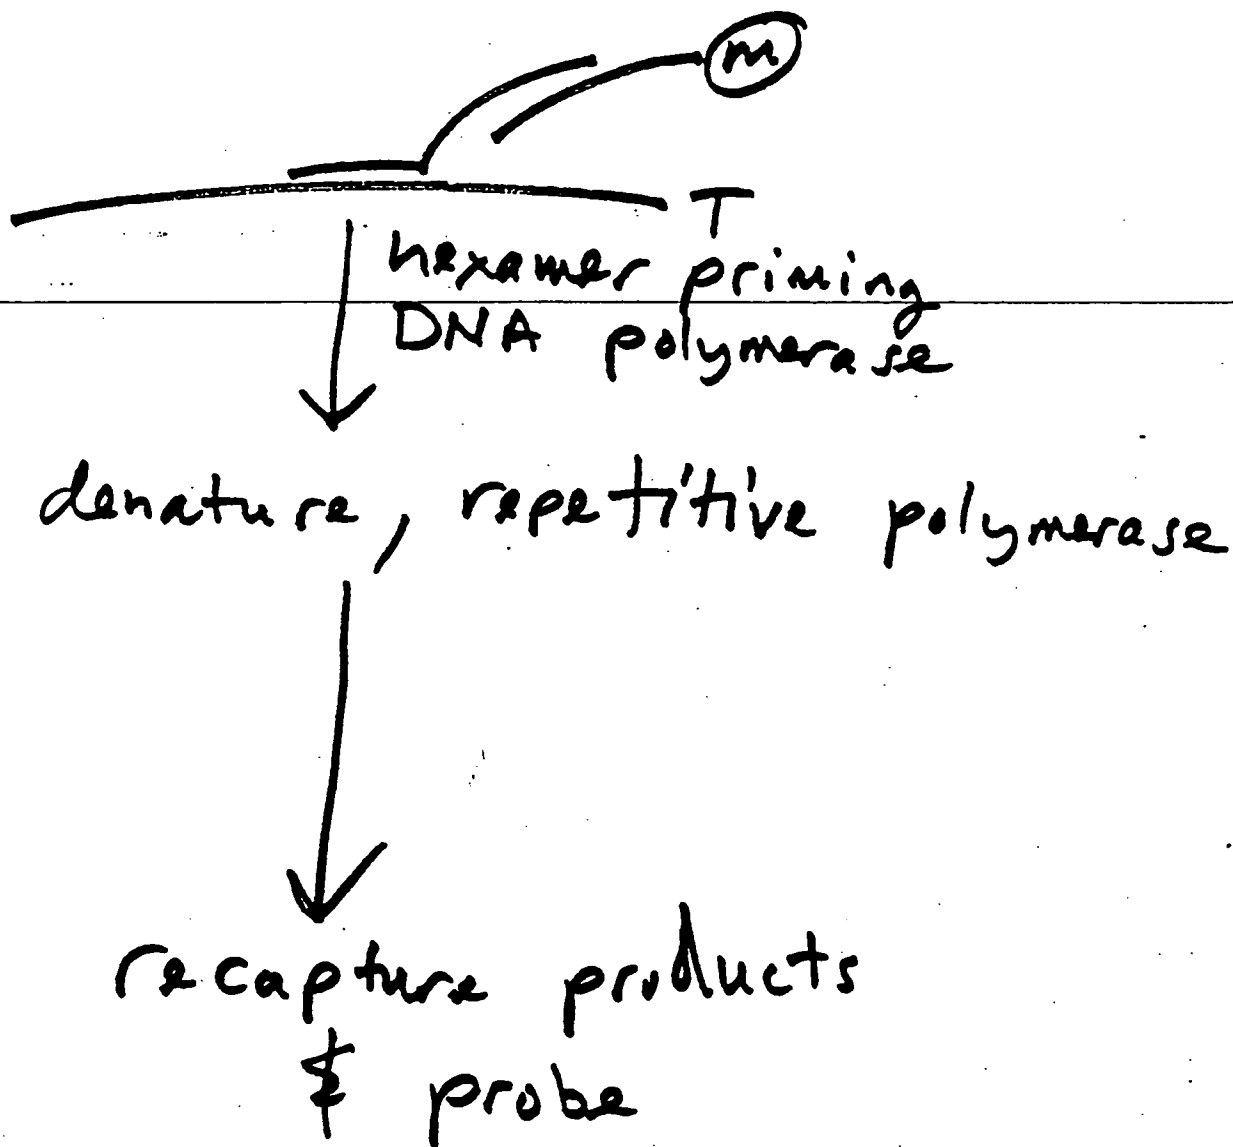 m
T
hexamer priming
DNA polymerase
denature, repetitive polymerase
recapture products
& probe